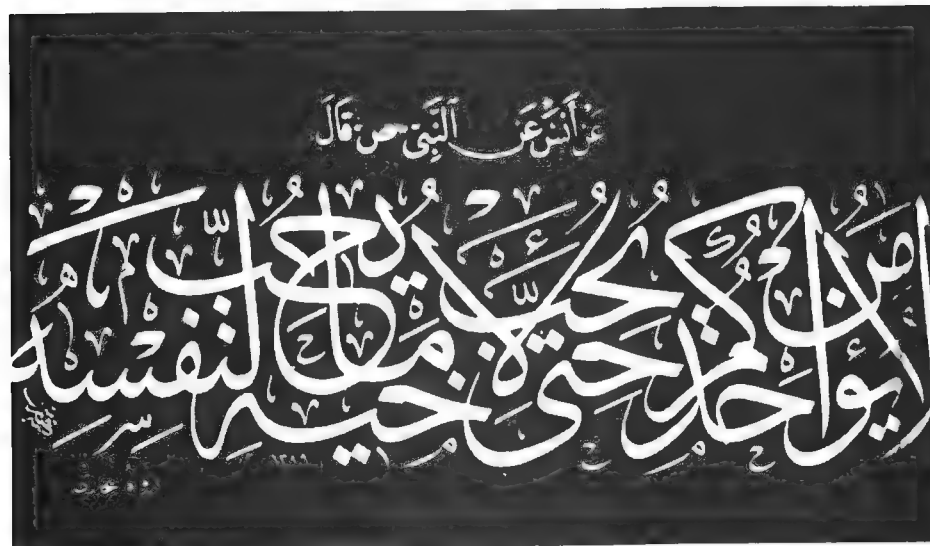 عَنْ أَنَسْ عَنِ النَّبِيِّ ص قَالَ
لا يؤمن أحدكم حتى يحب لأخيه ما يحب لنفسه